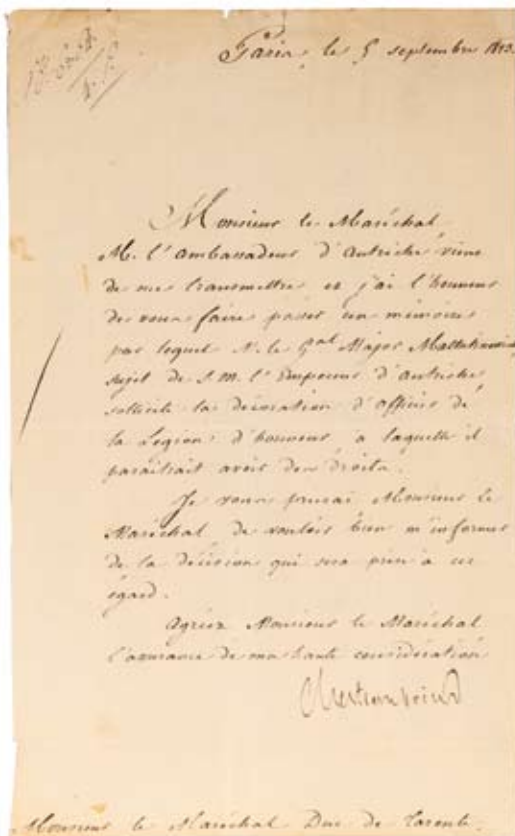 Paris, le 5 septembre 1823.
Monsieur le Maréchal
M. l'ambassadeur d'Autriche vient
de me transmettre et j'ai l'honneur
de vous faire passer un mémoire
par lequel M. le Gal Major
sujet de S. M. l'Empereur d'Autriche,
sollicite la décoration d'officier de
la Légion d'honneur à laquelle il
paraîtrait avoir des droits.
Je vous prierai Monsieur le
Maréchal de vouloir bien m'informer
de la décision qui sera prise à cet
égard.
Agréez Monsieur le Maréchal
l'assurance de ma haute considération
Chateaubriand
Monsieur le Maréchal Duc de Tarente.